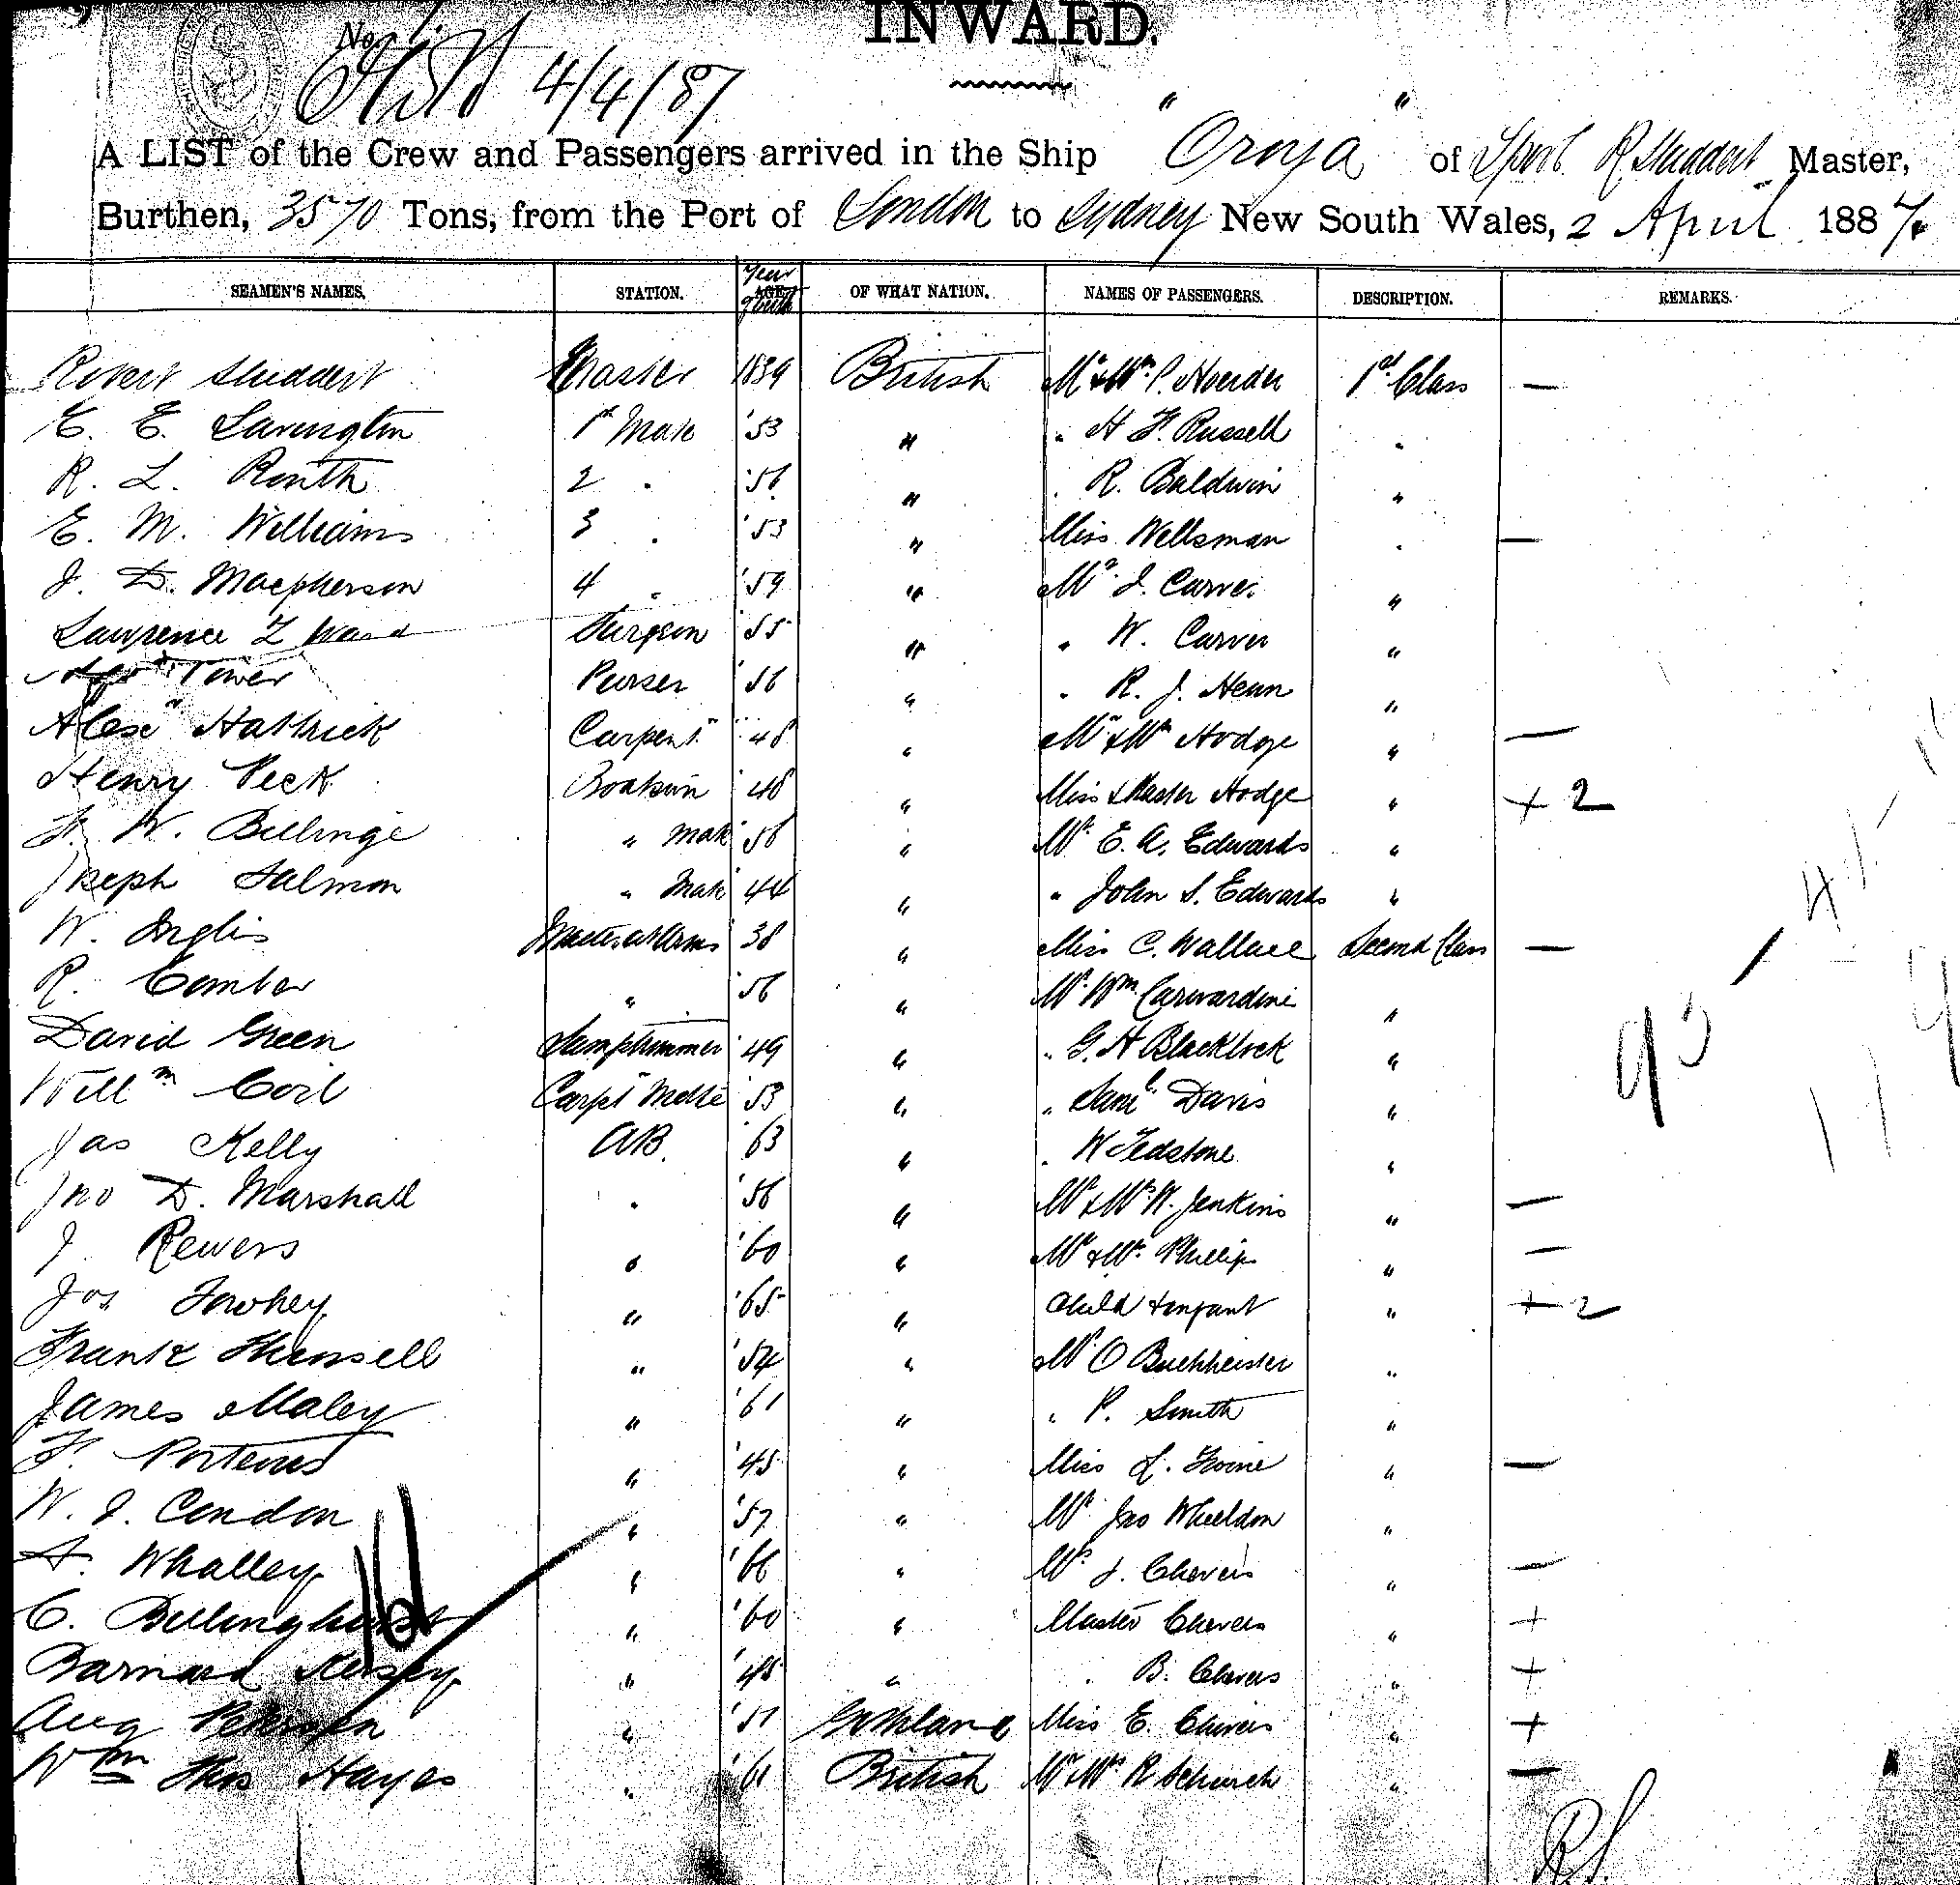 INWARD.
No 1.
4/4/87
A LIST of the Crew and Passengers arrived in the Ship "Oroya" of Lpool R Studdert Master,
Burthen, 3570 Tons, from the Port of London to Sydney New South Wales, 2 April 1887.
SEAMEN'S NAMES. STATION. Year of birth AGE OF WHAT NATION. NAMES OF PASSENGERS. DESCRIPTION. REMARKS.
Robert Studdert Master 1839 British Mr & Mrs P. Hoerder 1st Class —
E. E. Lavington 1st Mate '53 " " H F. Russell "
R. L. Routh 2 " '56 " " R. Baldwin "
E. M. Williams 3 " '53 " Miss Wellsman " —
J. D. Macpherson 4 " '59 " Mr J. Carver "
Lawrence Z Ward Surgeon '55 " " W. Carver "
Tower Purser '56 " " R. J. Henn "
Alexr Hattrick Carpentr '48 " Mr & Mrs Hodge " —
Henry Peck Boatswn '48 " Miss & Master Hodge " + 2
F. W. Billinge " mate '56 " Mr E. A. Edwards "
Joseph Salmon " Mate '44 " " John S. Edwards "
W. Inglis Master at Arms '38 " Miss C. Wallace Second Class —
R. Comber " '56 " Mr Wm Carwardine "
David Green Lamptrimmer '49 " " G. H Blacklock "
Willm Coil Carpts Mate '53 " " Saml Davis "
Jas Kelly AB. '63 " " W Tedstone "
Jno D. Marshall " '56 " Mr & Mrs W. Jenkins " —
J Rewers " '60 " Mr & Mrs Phillips " —
Jos Fowhey " '65 " Child & infant " + 2
Frank Hunsell " '54 " Mr O Buchheister "
James Maley " '61 " " P. Smith "
F. Porteus " '45 " Miss L. Irvine " —
W. J. Condon " '57 " Mr Jno Wheeldon "
A. Whalley " '66 " Mrs J. Chevers " —
C. Billinghurst " '60 " Master Chevers " +
Barnard Kersey " '48 " " B. Chevers " +
Aug Petersen " '51 Miss E. Chivers " +
Wm Thos Hayes " '61 British Mr & Mrs R Schurch " —
RS.